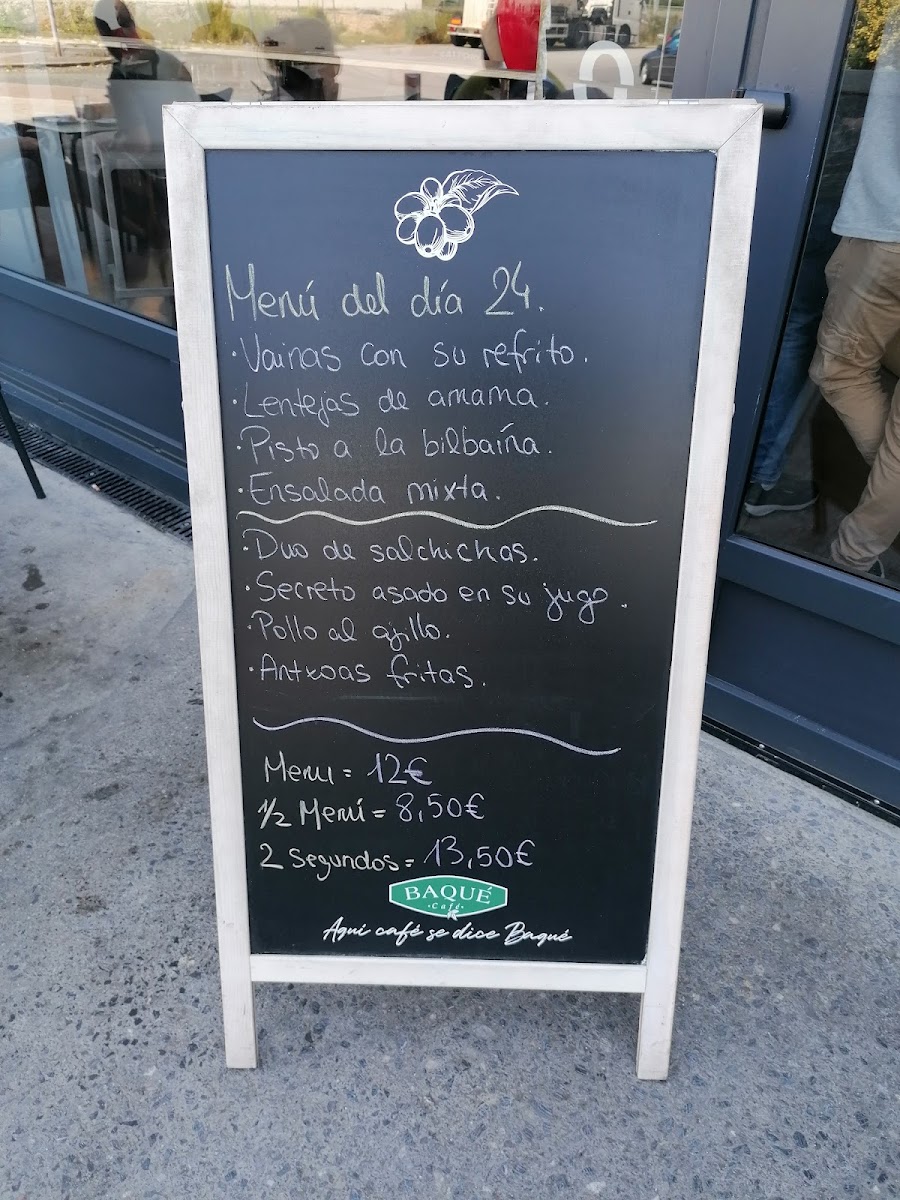 Menú del día 24.
· Vainas con su refrito.
· Lentejas de amama.
· Pisto a la bilbaína.
· Ensalada mixta.
· Duo de salchichas.
· Secreto asado en su jugo.
· Pollo al ajillo.
· Antxoas fritas.
Menu = 12€
1/2 Menú = 8,50€
2 segundos = 13,50€
BAQUÉ
·Café·
Aquí café se dice Baqué